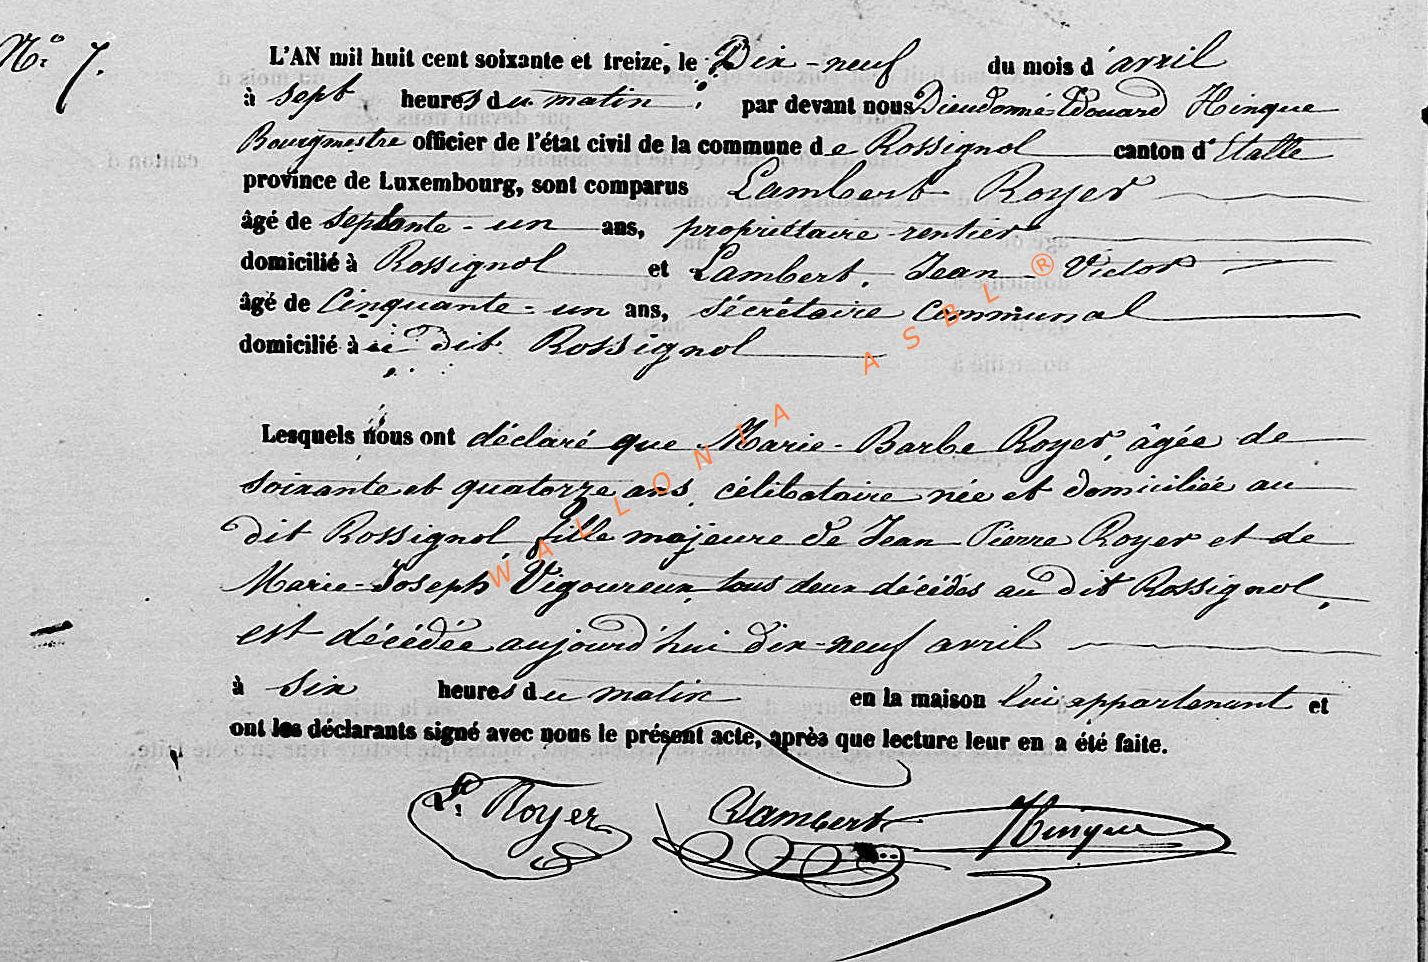 N° 7.
L'AN mil huit cent soixante et treize, le Dix-neuf du mois d'avril
à sept heures du matin par devant nous Dieudonné Edouard Hinque
Bourgmestre officier de l'état civil de la commune de Rossignol canton d'Etalle
province de Luxembourg, sont comparus Lambert Royer
âgé de septante-un ans, propriétaire rentier
domicilié à Rossignol et Lambert, Jean Victor
âgé de Cinquante-un ans, sécrétaire Communal
domicilié à dit Rossignol
Lesquels nous ont déclaré que Marie-Barbe Royer, âgée de
soixante et quatorze ans, célibataire née et domiciliée au
dit Rossignol, fille majeure de Jean Pierre Royer et de
Marie-Joseph Vigoureux, tous deux décédés au dit Rossignol,
est décédée aujourd'hui dix-neuf avril
à six heures du matin en la maison lui appartenant et
ont les déclarants signé avec nous le présent acte, après que lecture leur en a été faite.
L. Royer Lambert Hinque
WALLONIA ASBL ®